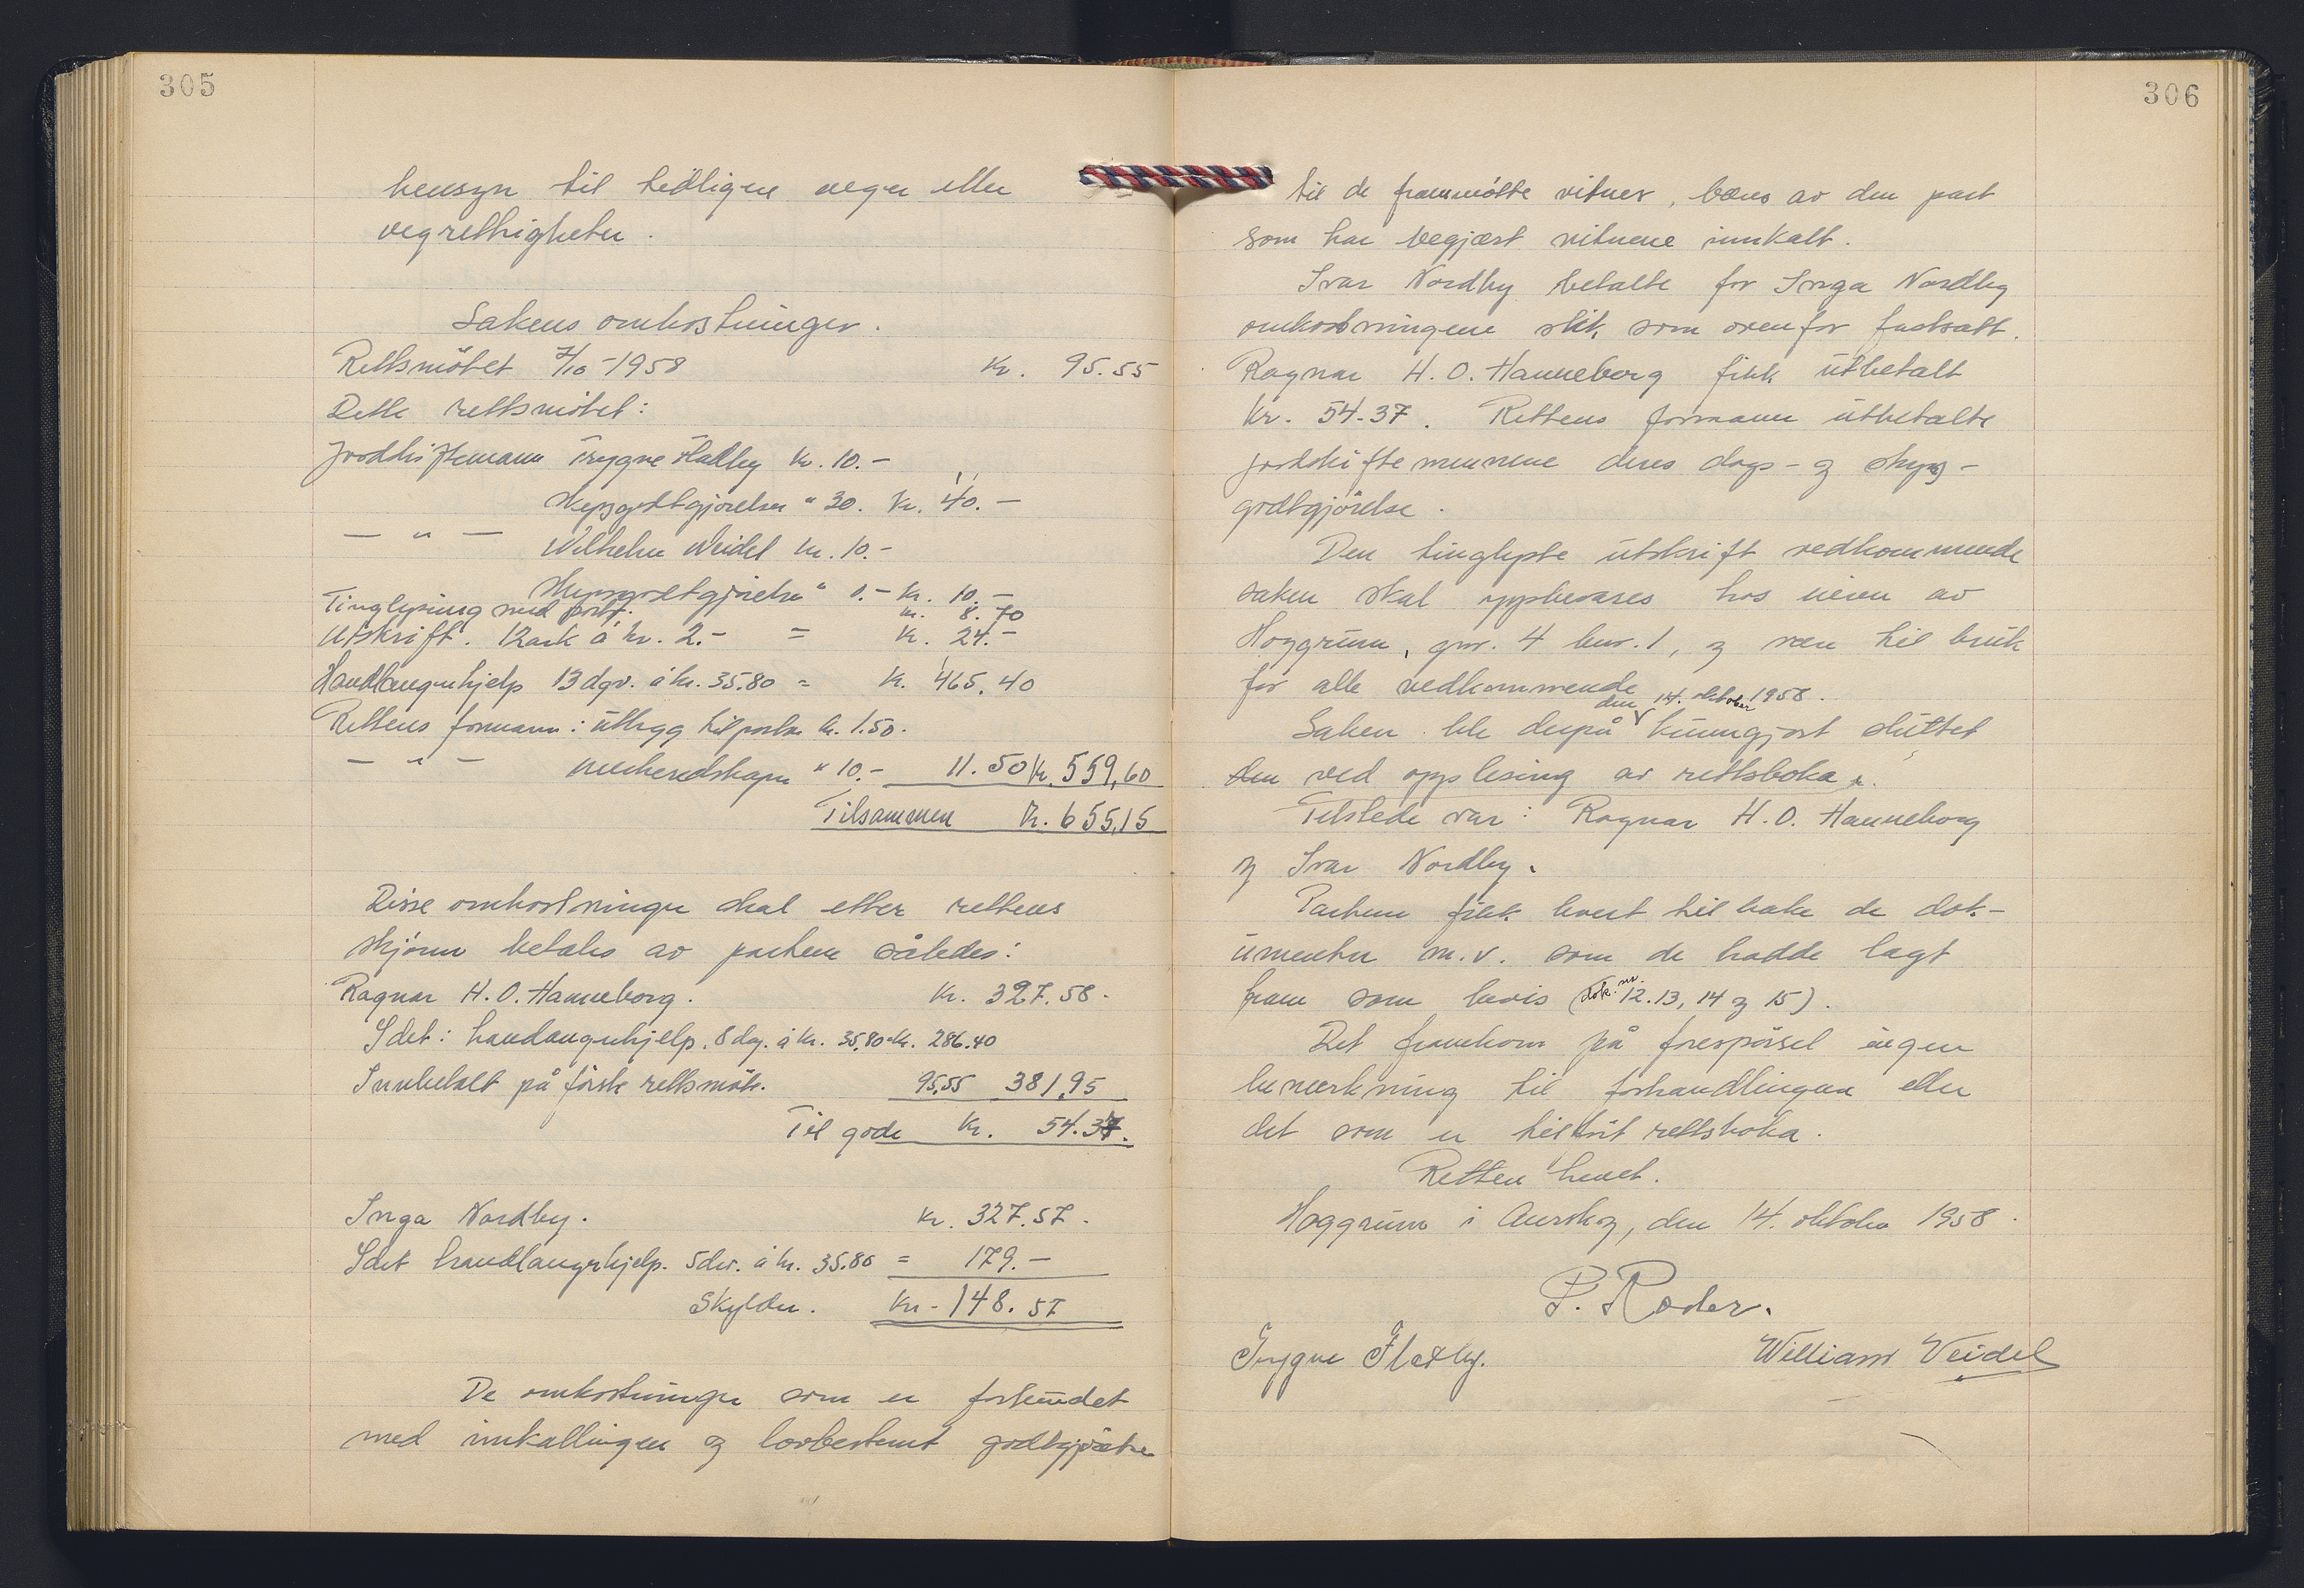 305
hensyn til tidligere veger eller
vegrettigheter.
Sakens omkostninger.
Rettsmötet 7/10-1958 Kr. 95.55
Dette rettsmötet:
Jordskiftemann Trygve Flatby Kr. 10.-
Skyssgodtgjörelse " 30. Kr. 40.-
— " — Wilhelm Weidel Kr. 10.-
Skyssgodtgjörelse " 0.- Kr. 10.-
Tinglysing med porto. Kr. 8.70
Utskrift. 12 ark á kr. 2.- = Kr. 24.-
Handlangerhjelp 13 dgv. á kr. 35.80 = Kr. 465.40
Rettens formann: utlegg til porto kr. 1.50.
— " — merkeredskaper " 10.- 11.50 Kr. 559,60
Tilsammen Kr. 655,15
Disse omkostninger skal etter rettens
skjönn betales av partene således:
Ragnar H. O. Hanneborg. Kr. 327.58.
I det: handangerhjelp. 8 dag. á kr. 35,80 = Kr. 286.40
Innbetalt på förste rettsmöte. 95,55 381,95
Til gode Kr. 54.37.
Inga Nordby. Kr. 327.57.
I det handlangerhjelp. 5 dv. á kr. 35.80 = 179.-
Skylder. Kr. 148.57
De omkostninger som er forbundet
med innkallingen og lovbestemt godtgjörelse
306
til de frammötte vitner, bæres av den part
som har begjært vitnene innkalt.
Ivar Nordby betalte for Inga Nordby
omkostningene slik som ovenfor fastsatt.
Ragnar H. O. Hanneborg fikk utbetalt
kr. 54.37. Rettens formann utbetalte
jordskiftemennene deres dags- og skyss-
godtgjörelse.
Den tinglyste utskrift vedkommende
saken skal oppbevares hos eieren av
Hoggrum, gnr. 4 bnr. 1, og være til bruk
for alle vedkommende
den 14. oktober 1958.
Saken ble derpå kunngjort sluttet
den ved opplesing av rettsboka.
Tilstede var: Ragnar H. O. Hanneborg
og Ivar Nordby.
Partene fikk hvert tilbake de dok-
umenter m.v. som de hadde lagt
fram som bevis (dok. nr. 12. 13, 14 og 15).
Det framkom på forespörsel ingen
bemerkning til forhandlingene eller
det som er tilfört rettsboka.
Retten hevet.
Hoggrum i Aurskog, den 14. oktober 1958.
P. Röder.
Trygve Flatby. William Veidel